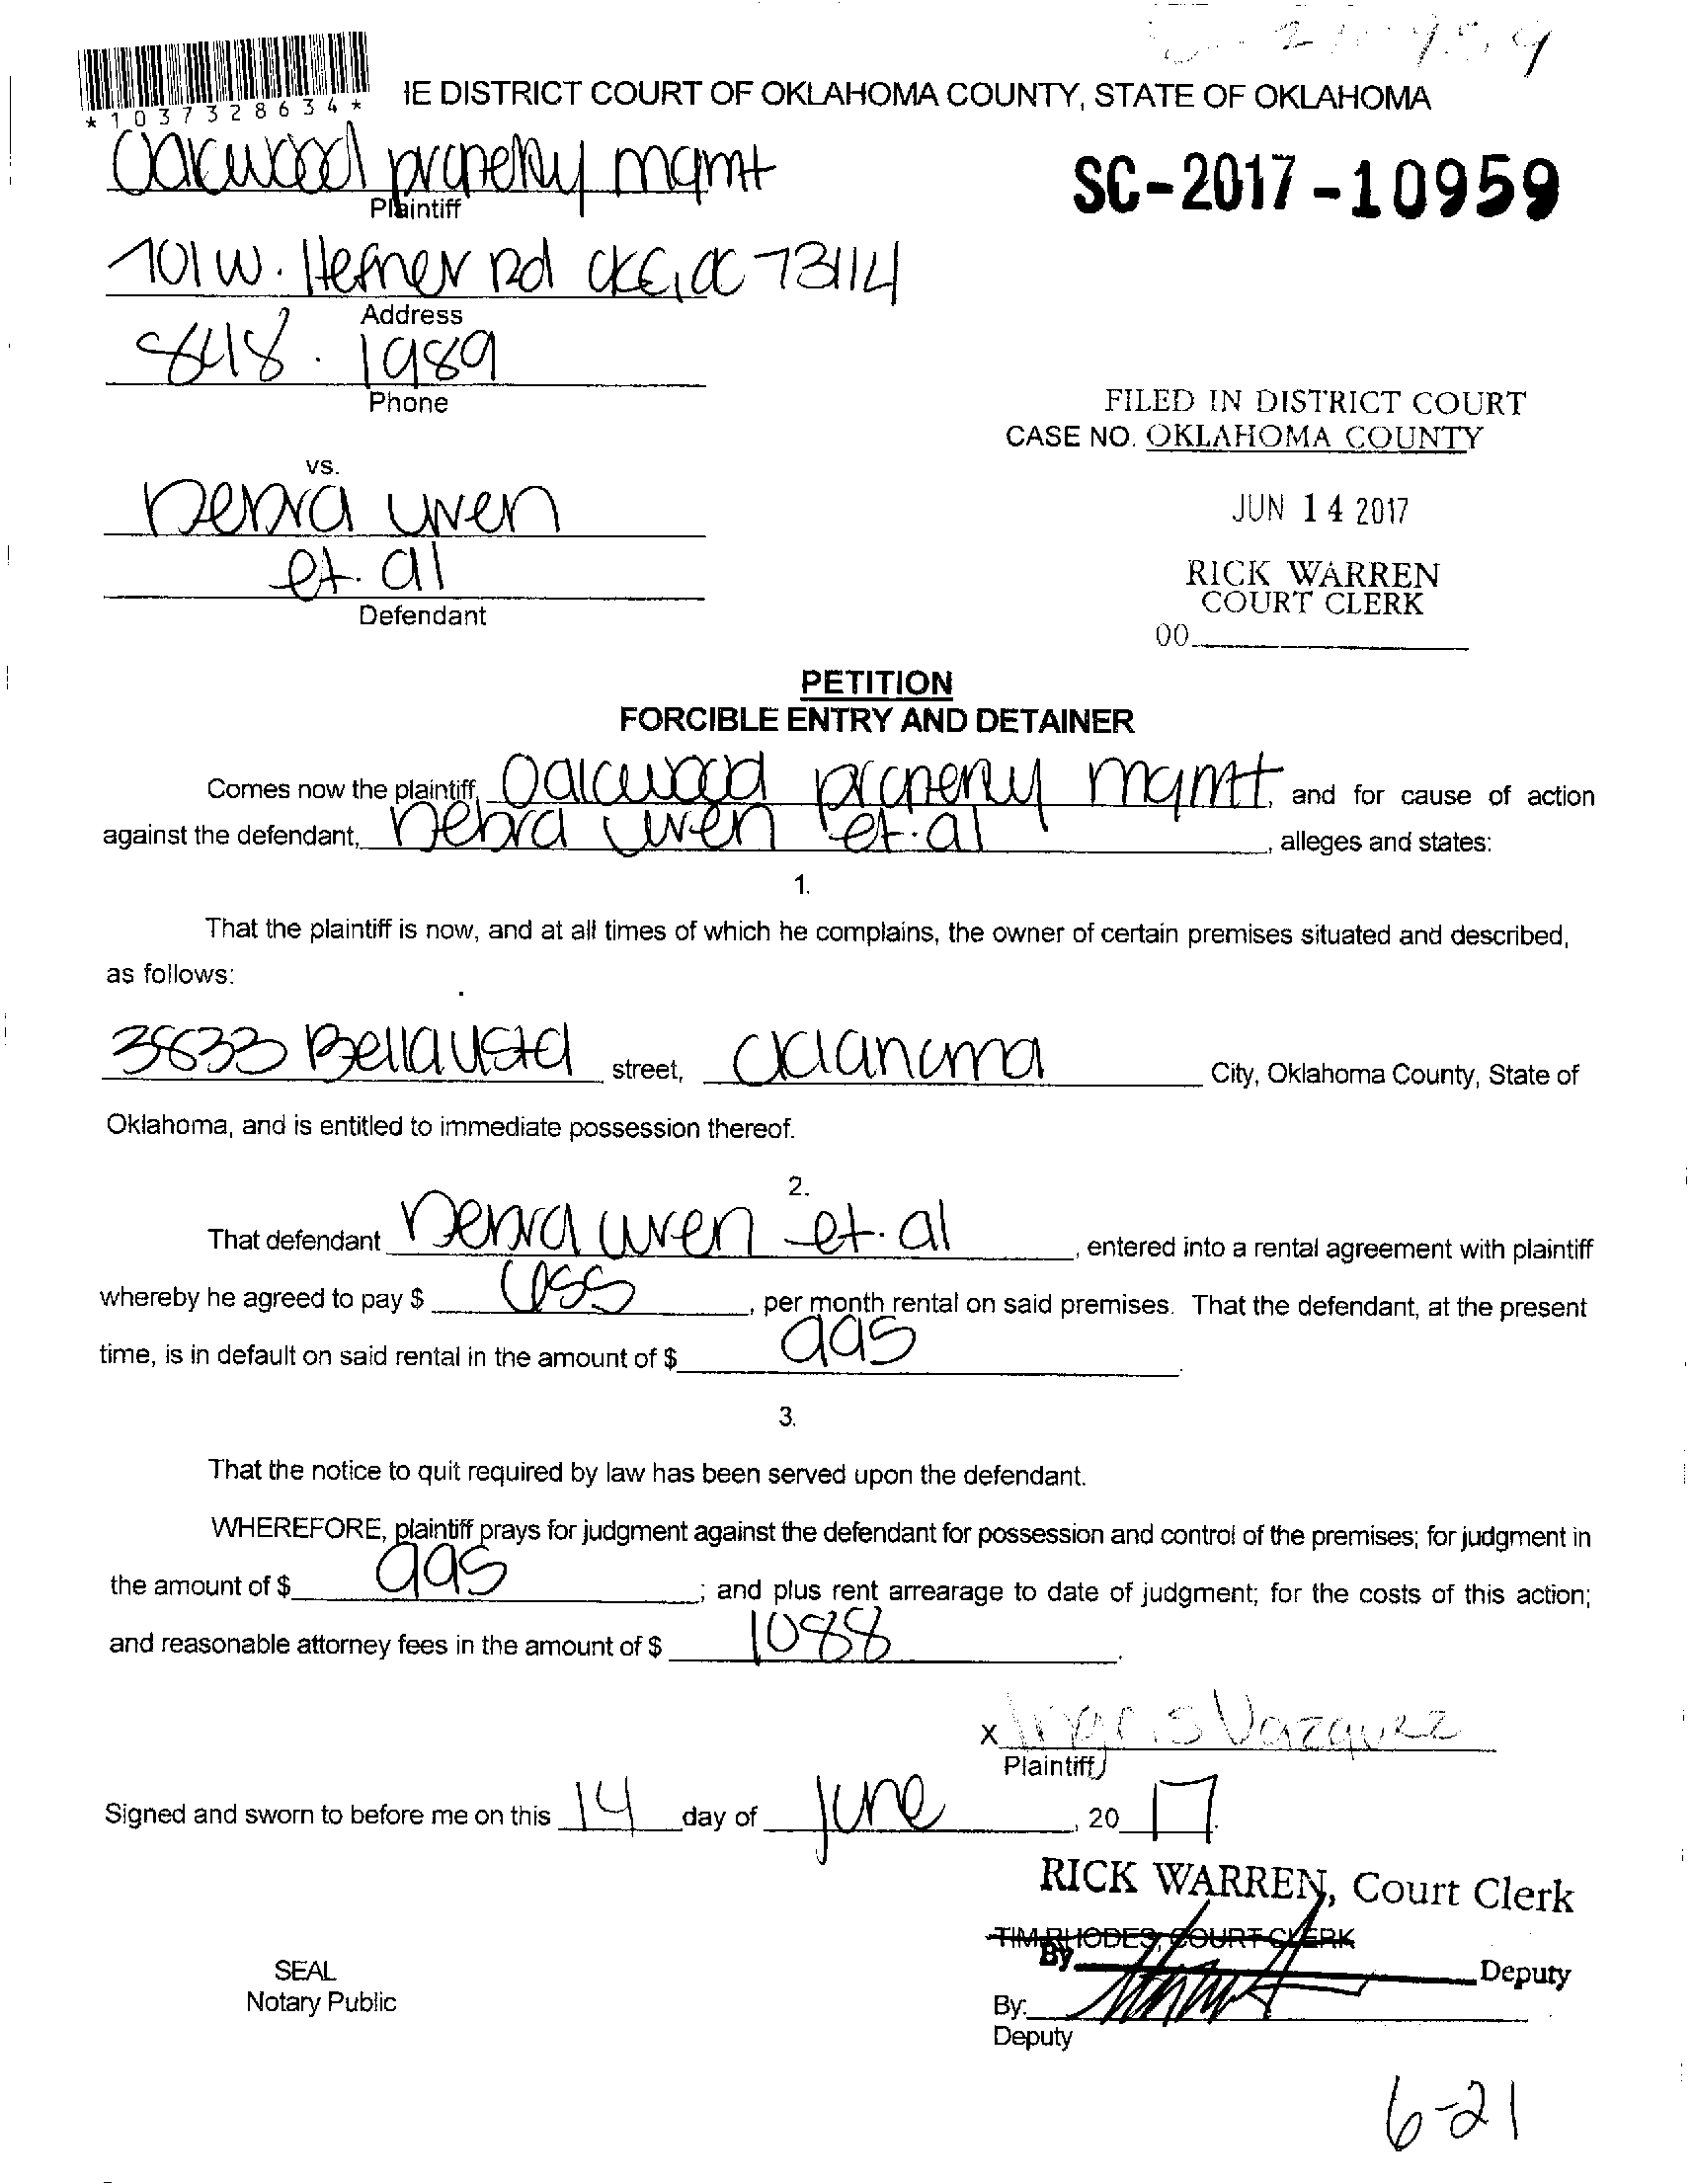 *1037328634*
IE DISTRICT COURT OF OKLAHOMA COUNTY, STATE OF OKLAHOMA
Oakwood property mgmt
Plaintiff
SC-2017-10959
701 W. Hefner Rd OKC, OK 73114
Address
848.1989
Phone
FILED IN DISTRICT COURT
CASE NO. OKLAHOMA COUNTY
vs.
Debra Uren
JUN 14 2017
et. al
Defendant
RICK WARREN
COURT CLERK
00
PETITION
FORCIBLE ENTRY AND DETAINER
Comes now the plaintiff, Oakwood property mgmt, and for cause of action
against the defendant, Debra Uren et. al, alleges and states:
1.
That the plaintiff is now, and at all times of which he complains, the owner of certain premises situated and described,
as follows:
3833 Bella Vista street, Oklahoma City, Oklahoma County, State of
Oklahoma, and is entitled to immediate possession thereof.
2.
That defendant Debra Uren et. al, entered into a rental agreement with plaintiff
whereby he agreed to pay $ , per month rental on said premises. That the defendant, at the present
time, is in default on said rental in the amount of $ 995.
3.
That the notice to quit required by law has been served upon the defendant.
WHEREFORE, plaintiff prays for judgment against the defendant for possession and control of the premises; for judgment in
the amount of $ 995; and plus rent arrearage to date of judgment; for the costs of this action;
and reasonable attorney fees in the amount of $ 1088.
X Vazquez
Plaintiff
Signed and sworn to before me on this 14 day of June, 2017.
RICK WARREN, Court Clerk
TIM RHODES, COURT CLERK
By Deputy
SEAL
Notary Public
By:
Deputy
6-21